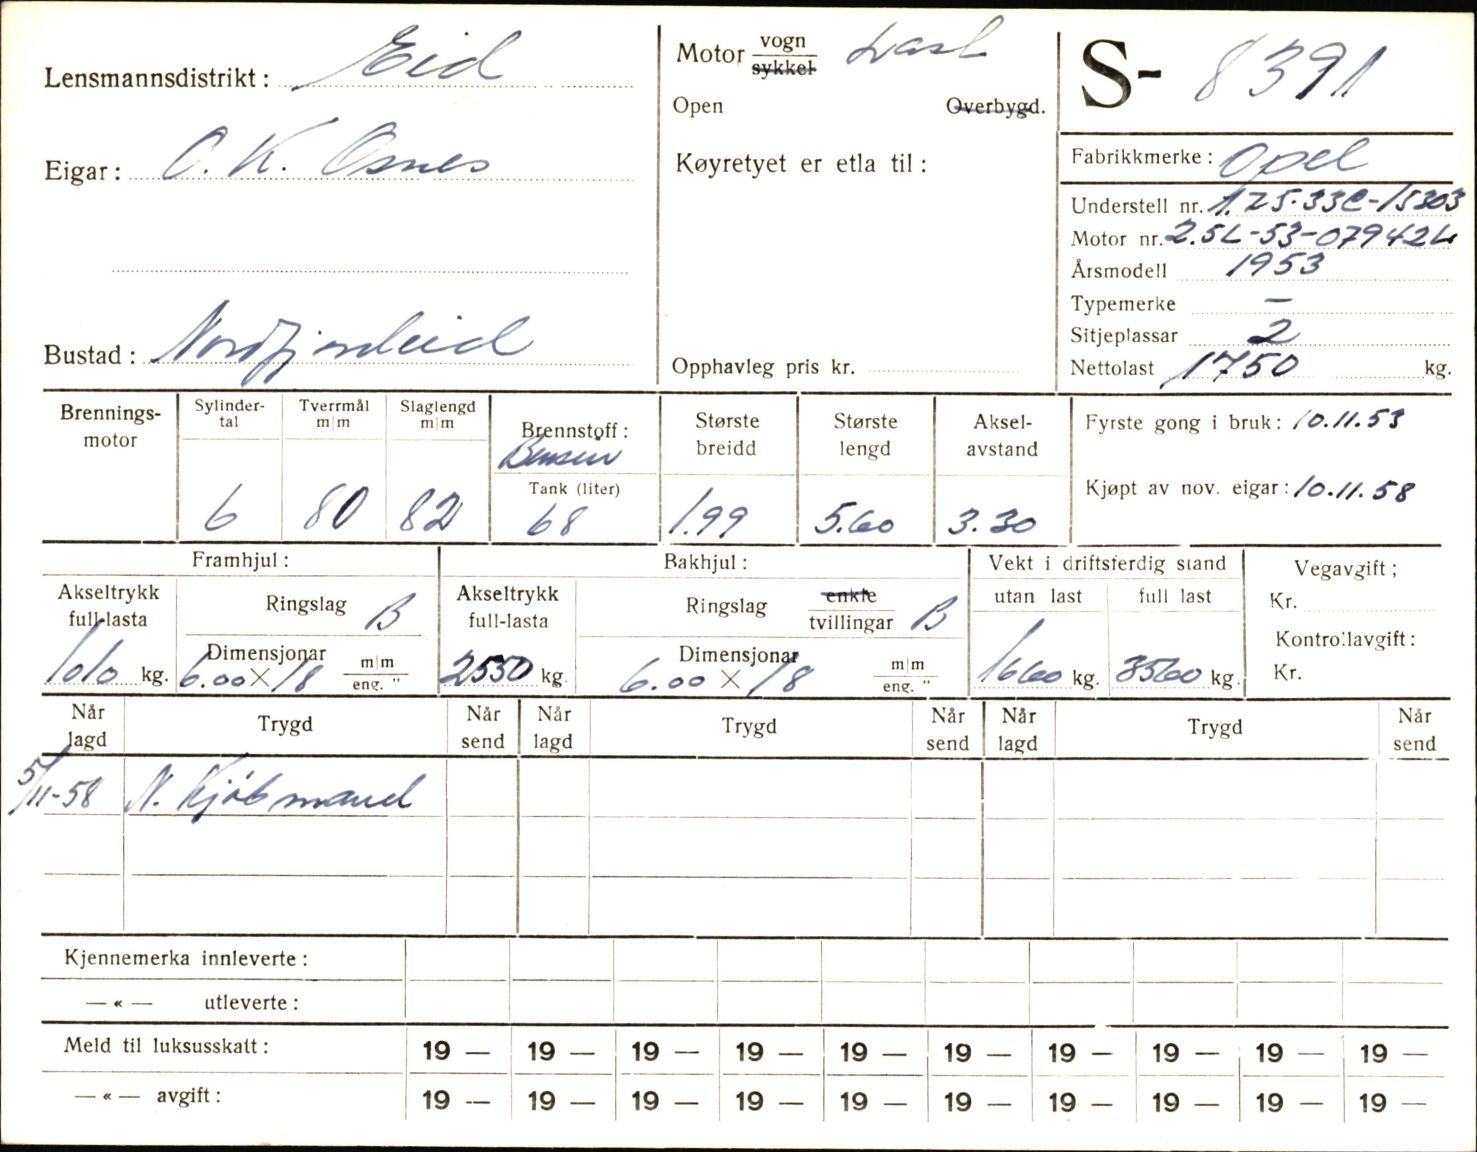 Lensmannsdistrikt: Eid
Motor vogn sykkel Last
S- 8391
Open Overbygd.
Eigar: O. K. Osnes
Køyretyet er etla til:
Fabrikkmerke: Opel
Understell nr. 1.75-33C-15303
Motor nr. 2.5L-53-07942L
Årsmodell 1953
Typemerke —
Sitjeplassar 2
Bustad: Nordfjordeid
Opphavleg pris kr.
Nettolast 1750 kg.
Brennings-
motor
Sylinder-
tal
6
Tverrmål
m|m
80
Slaglengd
m|m
82
Brennstoff:
Bensin
Tank (liter)
68
Største
breidd
1.99
Største
lengd
5.60
Aksel-
avstand
3.30
Fyrste gong i bruk: 10.11.53
Kjøpt av nov. eigar: 10.11.58
Framhjul:
Akseltrykk
full-lasta
1010 kg.
Ringslag B
Dimensjonar
6.00 × 18 m|m
eng. "
Bakhjul:
Akseltrykk
full-lasta
2550 kg.
Ringslag enkle
tvillingar B
Dimensjonar
6.00 × 18 m|m
eng. "
Vekt i driftsferdig stand
utan last
1660 kg.
full last
3560 kg.
Vegavgift;
Kr.
Kontrollavgift:
Kr.
Når
lagd
Trygd
Når
send
Når
lagd
Trygd
Når
send
Når
lagd
Trygd
Når
send
5/11-58 N. Kjøbmand
Kjennemerka innleverte:
— « — utleverte:
Meld til luksusskatt: 19 — 19 — 19 — 19 — 19 — 19 — 19 — 19 — 19 — 19 —
— « — avgift: 19 — 19 — 19 — 19 — 19 — 19 — 19 — 19 — 19 — 19 —